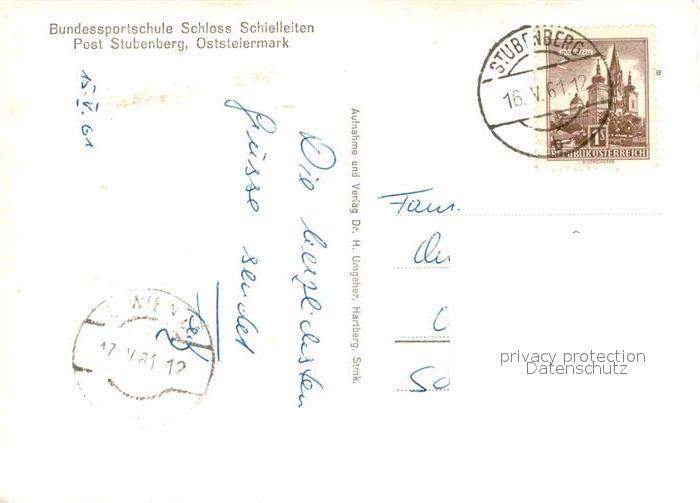 Bundessportschule Schloss Schielleiten
Post Stubenberg, Oststeiermark
15.V.61
Die herzlichsten
Grüsse sendet
Aufnahme und Verlag Dr. H. Umgeher, Hartberg, Stmk.
STUBENBERG
16.V.61.12
b
1S
REPUBLIK ÖSTERREICH
Fam.
WIEN
17.V.61 12
privacy protection
Datenschutz